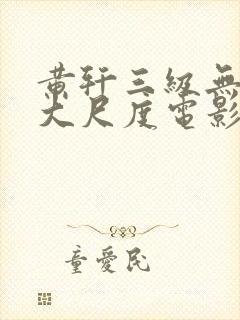 黄轩三級無
大尺度電影
童愛民